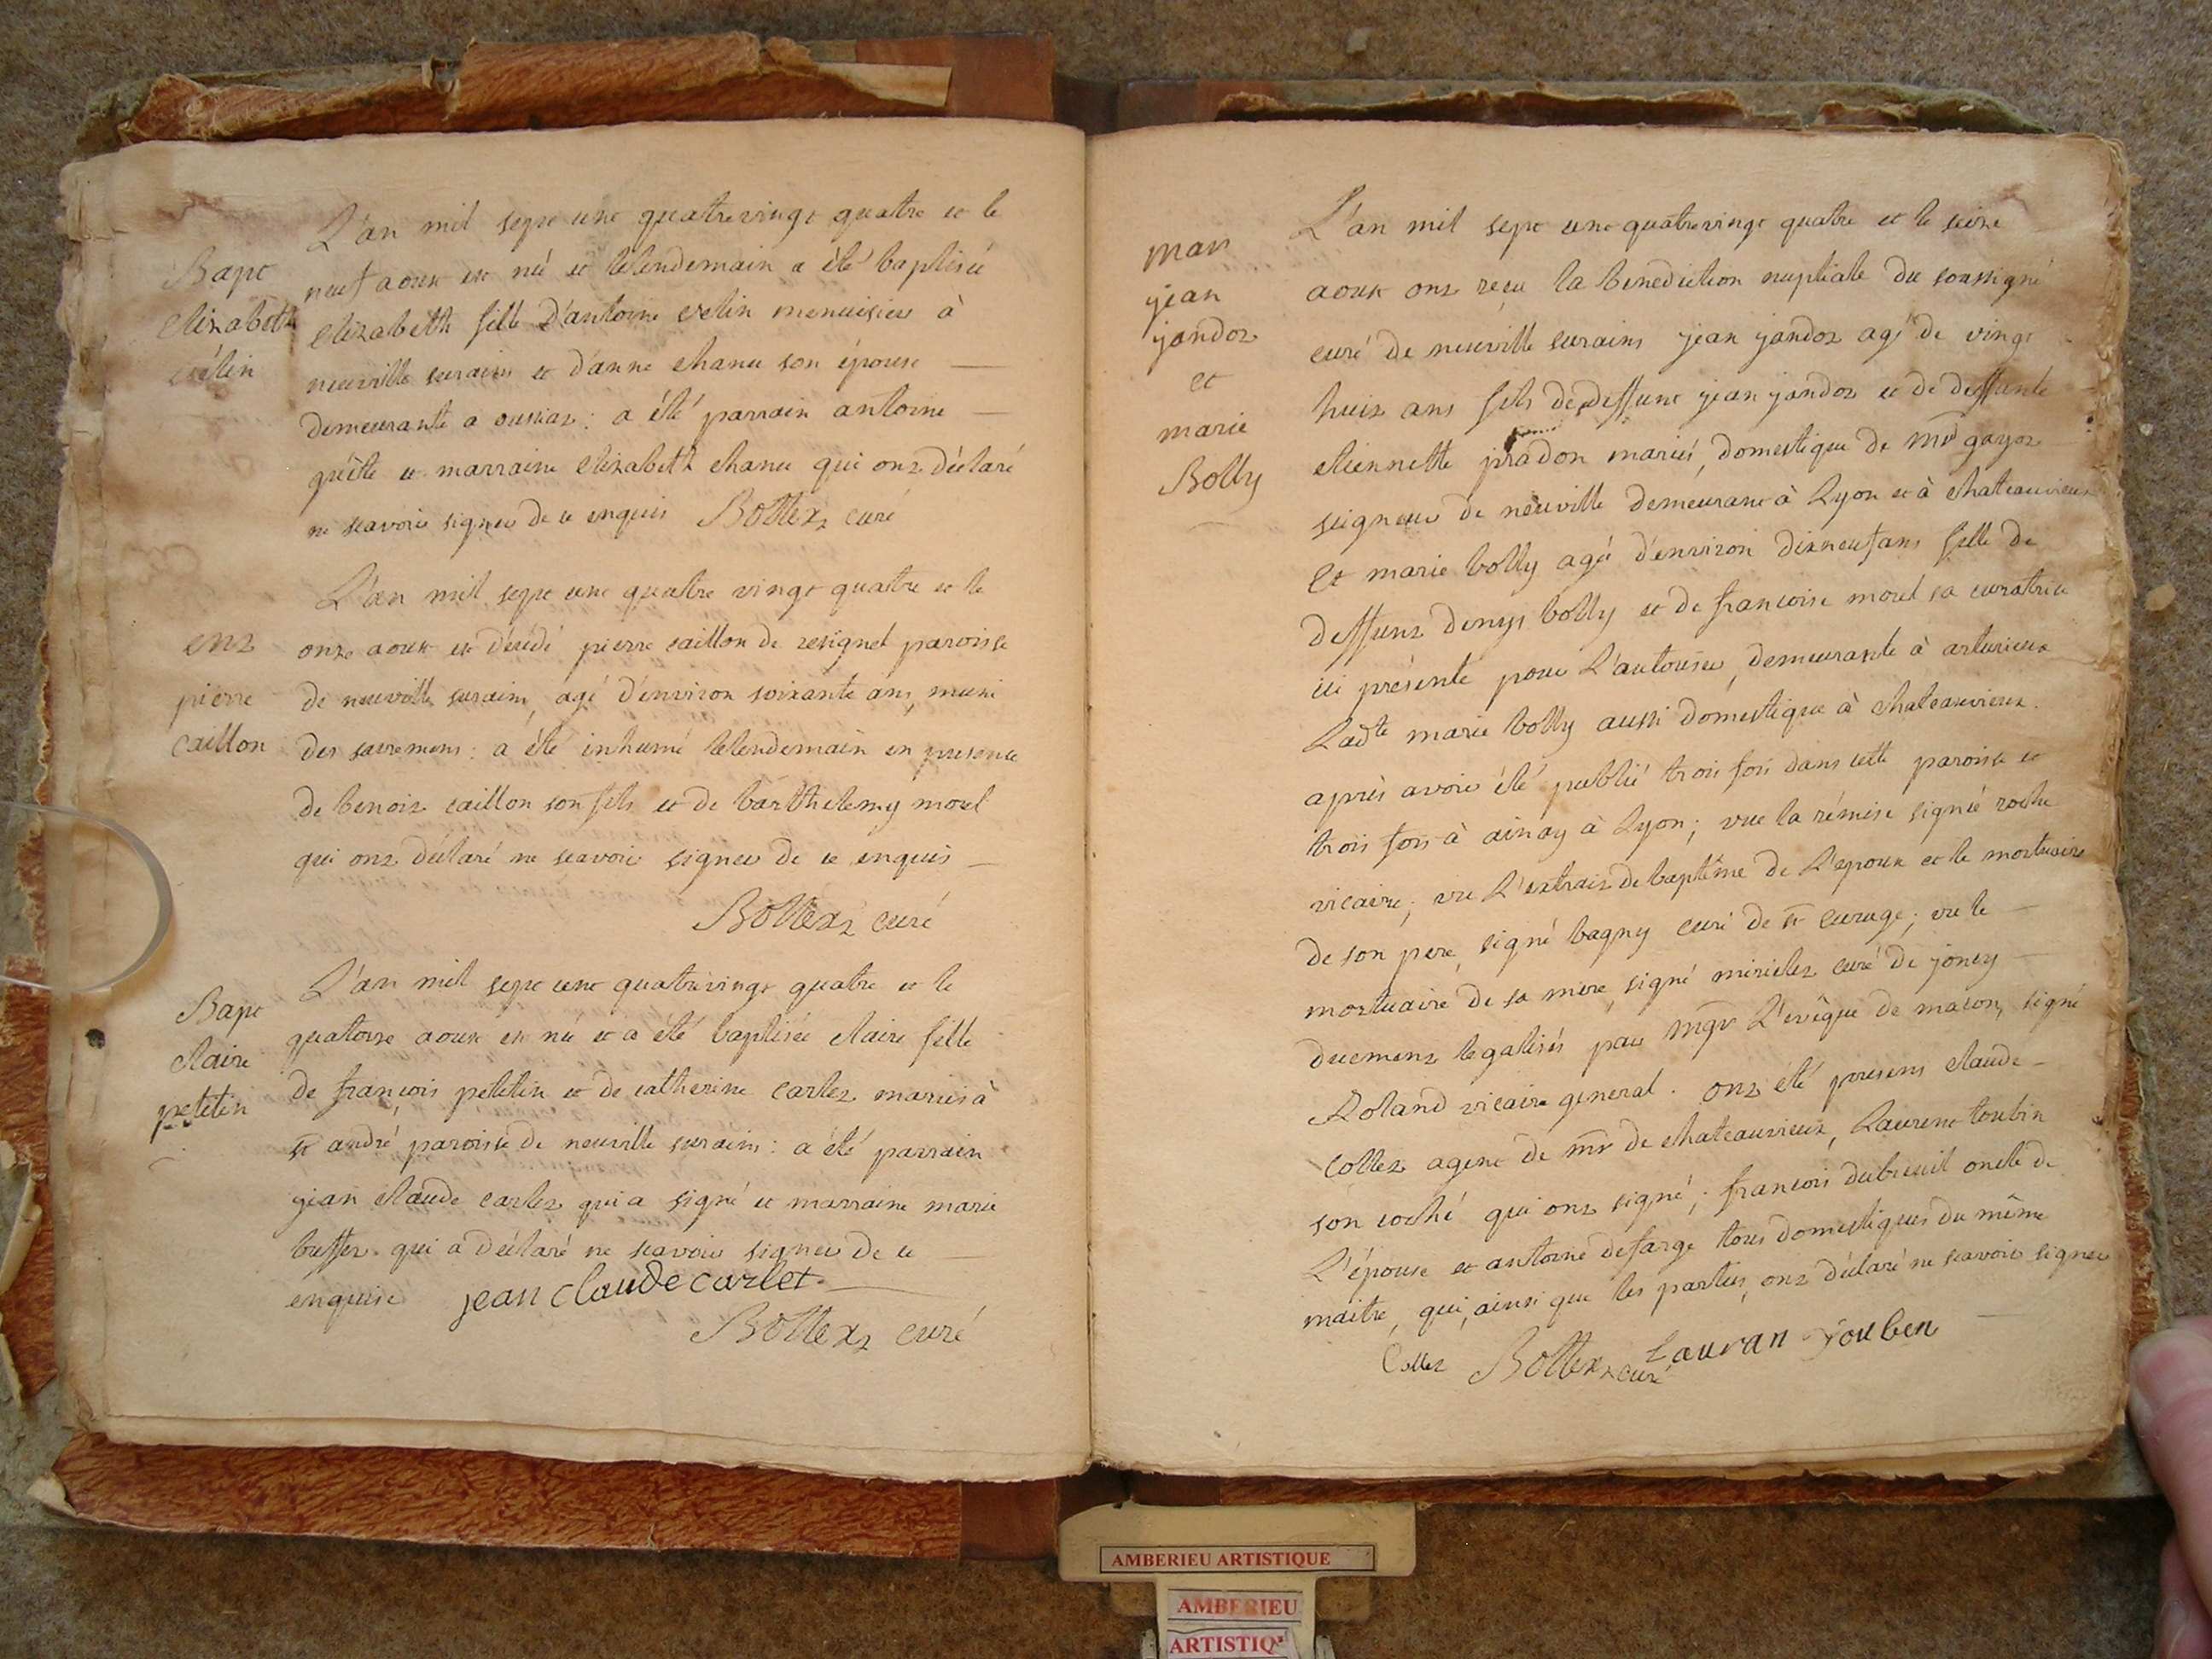 Bapt
elizabeth
velin
L'an mil sept cent quatrevingt quatre et le
neuf aoust est née et le lendemain a été baptisée
elizabeth fille d'antoine velin menuisier à
neuville surains et d'anne chanu son épouse
demeurante a oussiat : a été parrain antoine
et marraine elizabeth chanu qui ont déclaré
ne scavoir signer de ce enquis Bottex curé
ent
pierre
caillon
L'an mil sept cent quatre vingt quatre et le
onze aoust est décédé pierre caillon de resignel paroisse
de neuville surains, agé d'environ soixante ans, muni
des sacremens : a été inhumé le lendemain en presence
de benoit caillon son fils et de barthelemy morel
qui ont déclaré ne scavoir signer de ce enquis
Bottex curé
Bapt
claire
peletin
L'an mil sept cent quatrevingt quatre et le
quatorze aoust est née et a été baptisée claire fille
de françois peletin et de catherine carlet mariés à
st andré paroisse de neuville surains : a été parrain
jean claude carlet qui a signé et marraine marie
buffet qui a déclaré ne scavoir signer de ce
enquise jean claude carlet
Bottex curé
mar
jean
jandot
et
marie
Bolly
L'an mil sept cent quatrevingt quatre et le seize
aoust ont reçu la benediction nuptiale du soussigné
curé de neuville surains jean jandot agé de vingt
huit ans fils de deffunt jean jandot et de deffunte
etiennette pradon mariés, domestique de mr gayot
seigneur de neuville demeurant à Lyon et à chateauvieux
Et marie bolly agée d'environ dixneuf ans fille de
deffunt denys bolly et de françoise morel sa curatrice
ici présente pour L'autoriser, demeurante à arturieux
Ladte marie bolly aussi domestique à chateauvieux.
après avoir été publié trois fois dans cette paroisse et
trois fois à ainay à Lyon ; vue la rémise signée roche
vicaire ; vu L'extrait de baptême de L'epoux et le mortuaire
de son pere, signé bagny curé de st Curuge ; vu le
mortuaire de sa mere, signé mirielet curé de joncy
duement legalisés par mgr L'evêque de macon, signé
Roland vicaire general. ont été presens claude
Collet agent de mr de chateauvieux, Laurent toubin
son coché qui ont signé ; françois dubreuil oncle de
L'épouse et antoine defarge tous domestiques du même
maitre, qui, ainsi que les parties, ont déclaré ne scavoir signer
Collet Bottex curé Lauran Touben
AMBERIEU ARTISTIQUE
AMBERIEU
ARTISTIQ